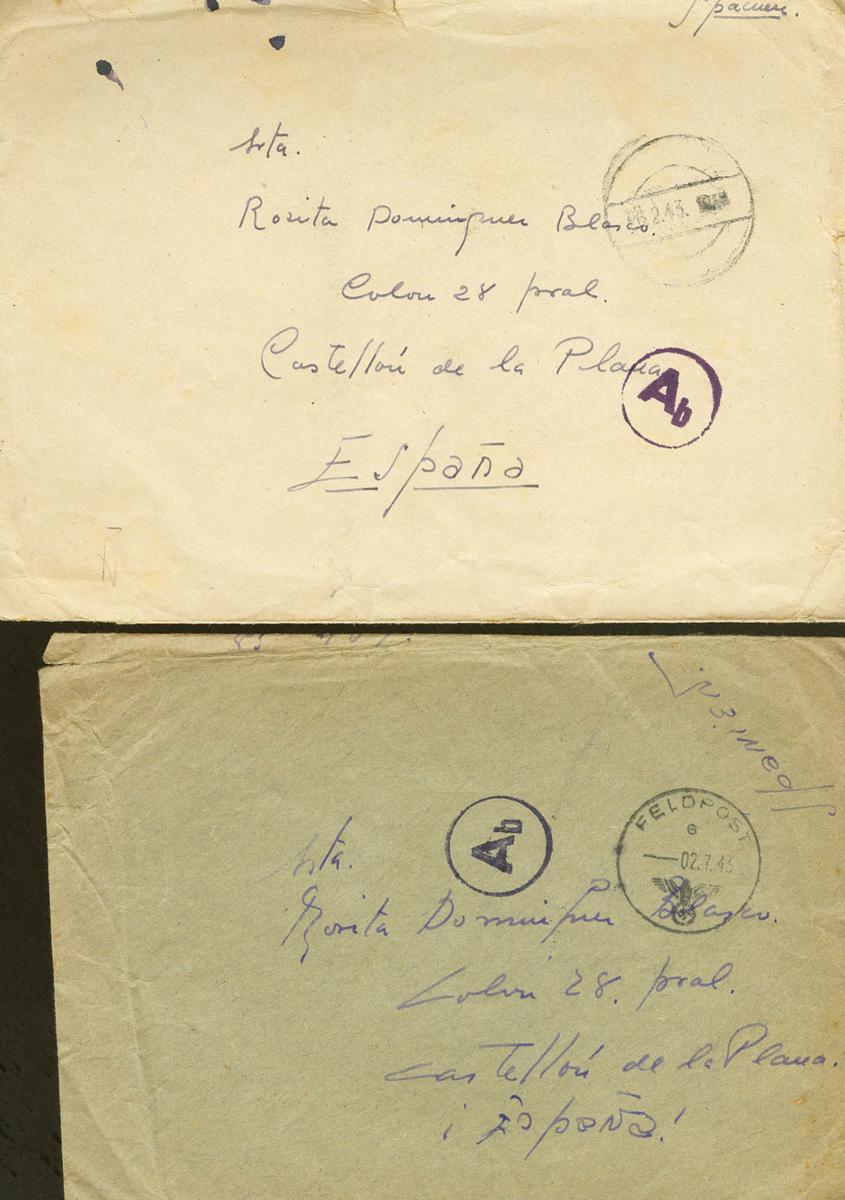 Spanien.
Srta.
Rosita Dominguez Blasco.
2.43.
Colon 28 pral.
Castellón de la Plana
Ab
España
FELDPOST
6
Ab
02.7.43
Srta.
Rosita Dominguez Blasco.
Colon 28. pral.
Castellón de la Plana.
¡España!